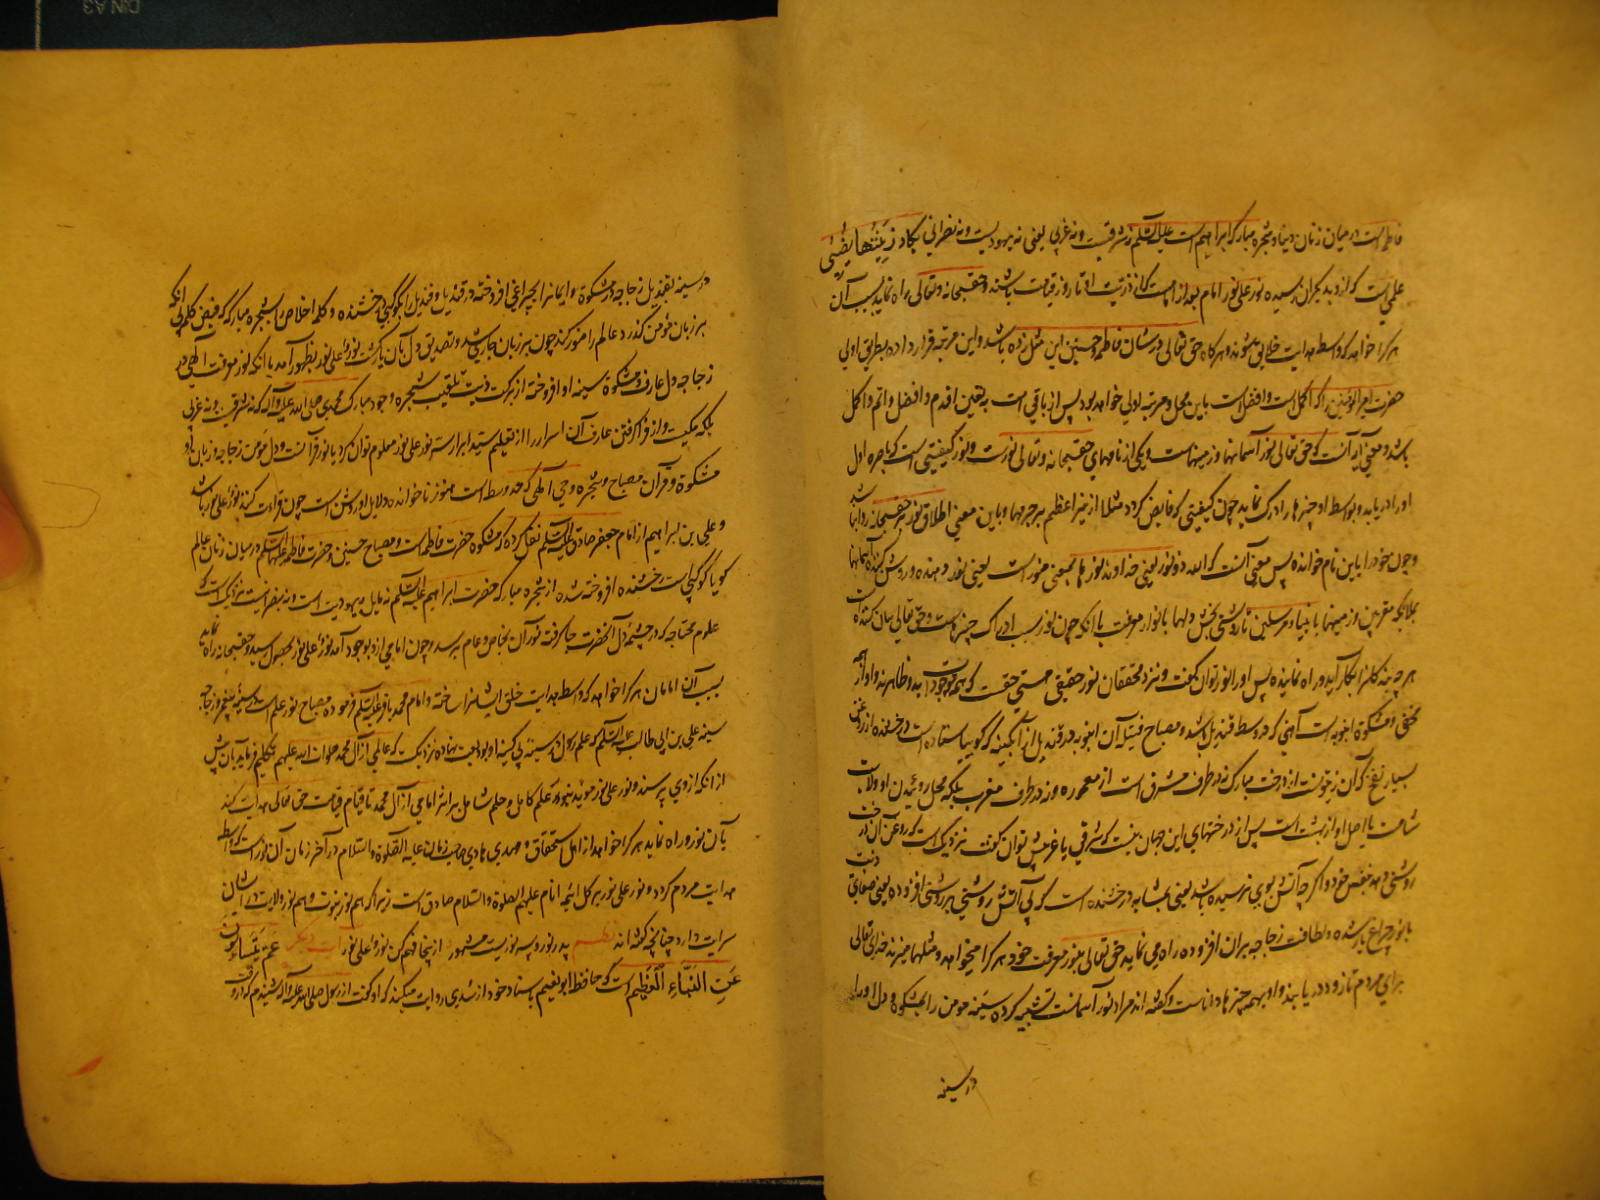 فاطمه است در میان زنان دنیا و شجره مبارکه ابراهیم است علیه السلم نه شرقیست و نه غربی یعنی نه یهودیست و نه نصرانی یکاد زیتها یضیئ
علمی است که از دیگران رسیده نور علی نور امام بعد از امام است که از ذریت او تا روز قیامت باشند و حقسبحانه و تعالی راه نماید بسبب آن
هر کرا خواهد که واسطه هدایت خلایق شوند و هرگاه حق تعالی در شان فاطمه و حسنین این مثل زده باشد و این مرتبه قرار داده بطریق اولی
حضرت امیرالمؤمنین را که اکمل است و افضل است باین محل و مرتبه اولی خواهد بود پس از باقی است یقین اقدم و افضل و اتم و اکمل
باشد و معنی آیه آنست که حق تعالی نور آسمانها و زمینهاست و یکی از نامهای حقسبحانه و تعالی نورست و نور کیفیتی است که باصره اول
او را دریابد و بواسطه او چیزها را درک نماید چون کیفیتی که فایض کردد مثلا از نیر اعظم بر جرمها و باین معنی اطلاق نور بر حقسبحانه روا نباشد
و چون خود را باین نام خوانده پس معنی آنست که الله ذو نور یعنی خداوند نورها بمعنی منور است یعنی نور دهنده و روشن کننده آسمانها
بملائکه مقربین و زمینها بانبیاء مرسلین تا روشنی بخش دلها بانوار معرفت یا آنکه چون نور سبب ادراک چیزهاست و حق تعالی بیان کننده است
هر چه بنده کانرا بکار آید و راه نماینده پس او را نور توان گفت و نزد محققان نور حقیقی هستی حقست که همه موجودات بدو ظاهرند و او از همه
مخفی و مشکوة انبوبه است آهنی که در وسط قندیل باشد و مصباح فتیله آن انبوبه در قندیل از آبگینه که گوییا ستاره است درخشنده از روغن
بسیار نفع که آن زیتونست از درخت مبارک نه در طرف مشرق است از معموره و نه در طرف مغرب بلکه محل روئیدن او ولایت
شامست یا اصل او از بهشت است پس از درختهای این جهان نیست که شرقی یا غربیش توان گفت نزدیک است که روغن آن درخت
روشنی دهد بنفس خود و اگرچه آتش بوی نرسیده باشد یعنی بمثابه درخشنده است که بی آتش روشنی بر روشنی افزوده یعنی صفای زیت
با نور چراغ یار شده و لطافت زجاجه بر آن افزوده راه می نماید حق تعالی بنور معرفت خود هر کرا میخواهد و مثلها میزند خدای تعالی
برای مردم تا زود دریابند و او بهمه چیزها داناست و گفته اند مراد نور آسمانست تشبیه کرده سینه مومن را بمشکوة و دل او را
در سینه
در سینه بقندیل زجاجه در مشکوة و ایمانرا بچراغی افروخته در قندیل و قندیل را بکوکبی درخشنده و کلمه اخلاص را بشجره مبارکه که فیض کلمه پی آنکه
بر زبان مؤمن گذرد عالم را منور کند چون بر زبان جاری شد و تصدیق دل بآن یار گشت نور علی نور بظهور آمد یا آنکه نور معرفت الهی در
زجاجه دل عارف و مشکوة سینه او افروخته از برکت ذیت تلقیب شجره وجود مبارک محمدی صلی الله علیه و آله که نه شرقیست و نه غربی
بلکه مکیست و از فرا گرفتن عارف آن اسرار را از تعلیم سید ابرار سر نور علی نور معلوم توان کرد یا نور قرآنست و دل مؤمن زجاجه و زبان او
مشکوة و قرآن مصباح و شجره وحی الهی که حد وسط است هنوز ناخوانده دلایل او روشن است چون قراءت کنند نور علی نور باشد
و علی بن ابراهیم از امام جعفر صادق علیه السلم نقل کرده که مشکوة حضرت فاطمه است و مصباح حسنین و حضرت فاطمه علیها السلم در میان زنان عالم
گویا کوکبی است درخشنده افروخته شده از شجره مبارکه حضرت ابراهیم علیه السلم نه مایل بیهودیت است و نه بنصرانیت نزدیک است که
علوم محتاجه که در چشمه دل آنحضرت جا گرفته نور آن بخاص و عام برسد و چون امامی از او بوجود آمد نور علی نور بحصول رسید و حقسبحانه راه نماید
بسبب آن امامان هر کرا خواهد که واسطه هدایت خلق ایشانرا ساخته و امام محمد باقر علیه السلم فرموده مصباح نور علم است در سینه پیغمبر و زجاجه
سینه علی بن ابی طالب علیه السلم که علم رسول در سینه بی کینه او بودیعت نهاده نزدیکست که عالمی از آل محمد صلوات الله علیهم تکلم فرماید بآن پیش
از آنکه از وی پرسند و نور علی نور موید بنور علم کامل و حلم شامل بر اثر امامی از آل محمد تا قیام قیامت حق تعالی هدایت کند
بآن نور و راه نماید هر کرا خواهد از اهل استحقاق و مهدی هادی صاحب زمان علیه الصلوة والسلام در آخر زمان آن نور است که واسطه
هدایت مردم گردد و نور علی نور بر کل ائمه انام علیهم الصلوة والسلام صادق است زیرا که هم نور نبوت و هم نور ولایت در ایشان
سرایت دارد چنانچه گفته اند نظم پدر نور و پسر نوریست مشهور از ینجا فهم کن نور علی نور آیت دیگر عم یتساءلون
عن النباء العظیم است که حافظ ابو نعیم باسناد خود از سدی روایت میکند که او گفت از رسول صلی الله علیه و آله شنیدم که او